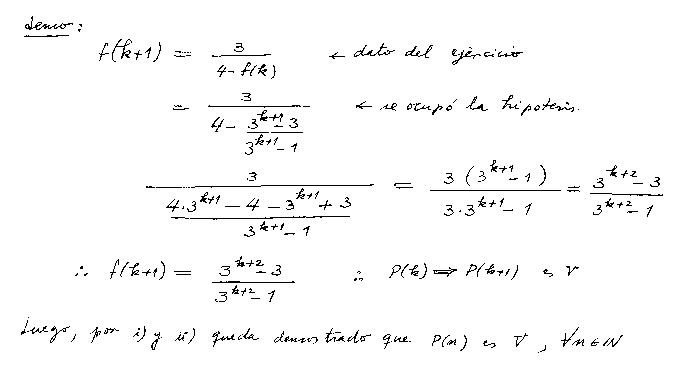 demo:
f(k+1) = 3 / (4 - f(k)) ← dato del ejercicio
= 3 / (4 - (3^{k+1} - 3) / (3^{k+1} - 1)) ← se ocupó la hipotesis.
3 / ((4·3^{k+1} - 4 - 3^{k+1} + 3) / (3^{k+1} - 1)) = 3(3^{k+1} - 1) / (3·3^{k+1} - 1) = (3^{k+2} - 3) / (3^{k+2} - 1)
∴ f(k+1) = (3^{k+2} - 3) / (3^{k+2} - 1) ∴ P(k) ⟹ P(k+1) es V
Luego, por i) y ii) queda demostrado que P(n) es V, ∀n∈ℕ